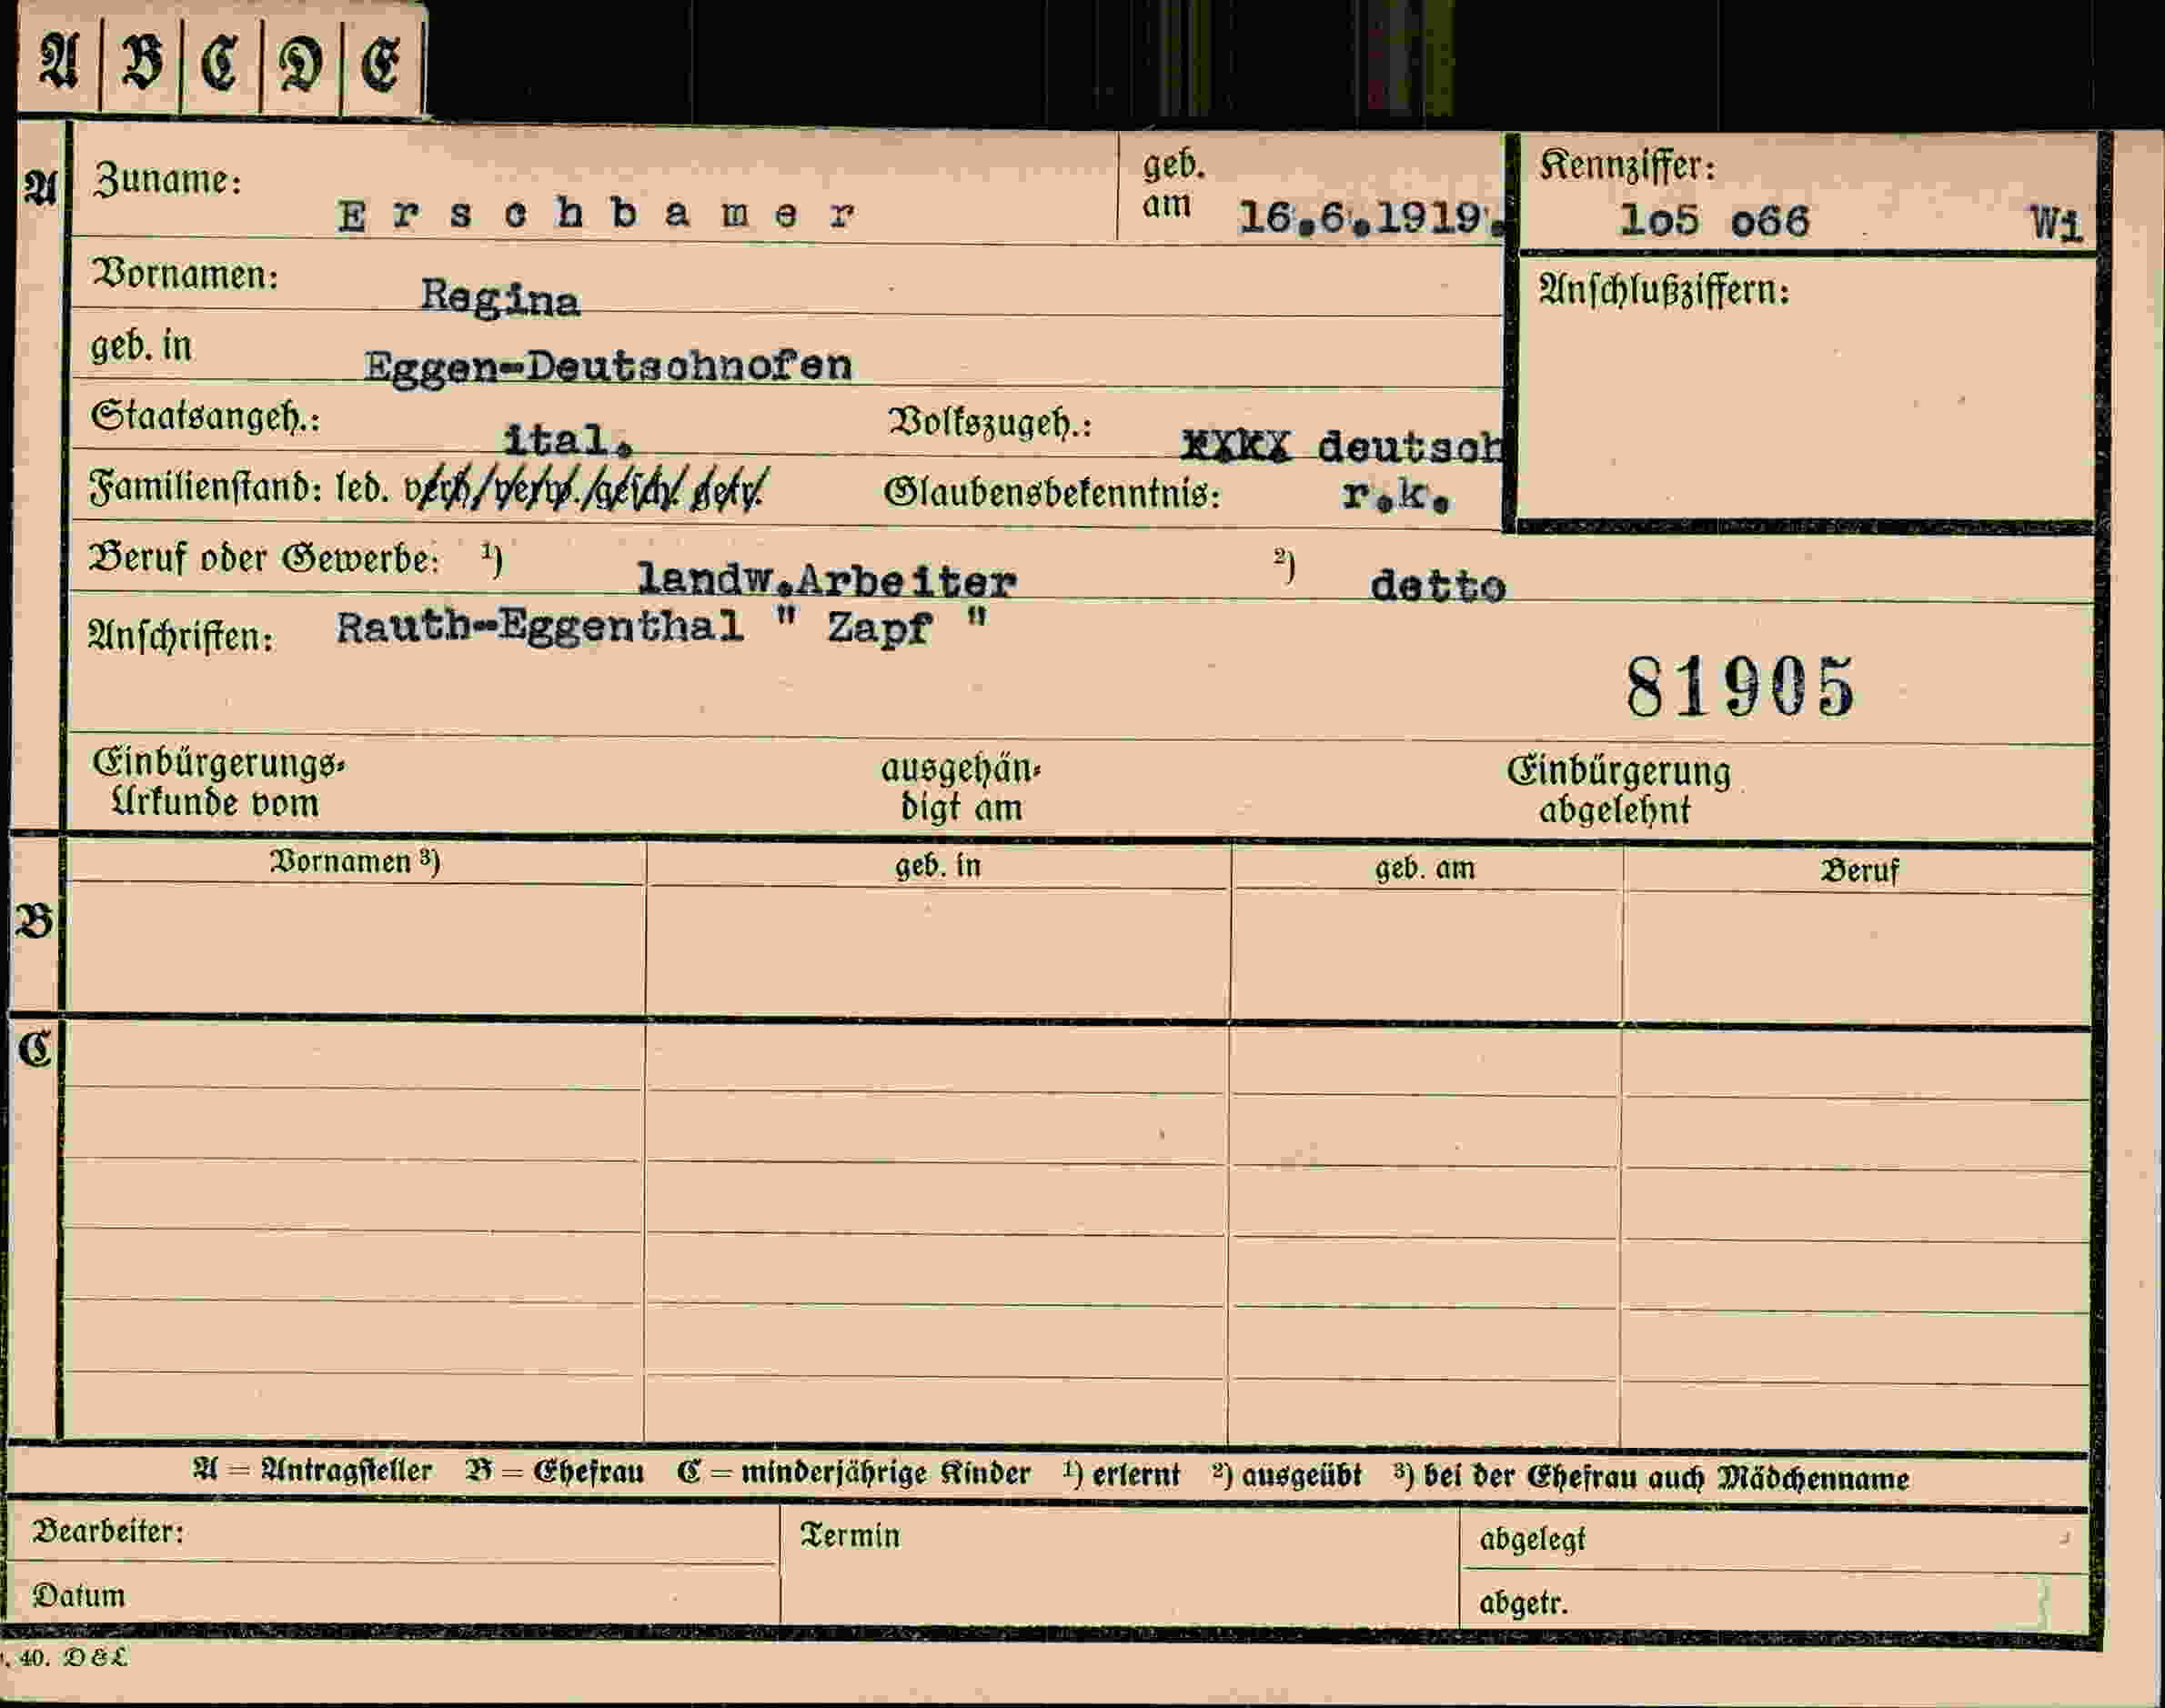 A B C D E
A Zuname: Erschbamer geb. am 16.6.1919. Kennziffer: 1o5 o66 Wi
Vornamen: Regina Anschlußziffern:
geb. in Eggen-Deutschnofen
Staatsangeh.: ital. Volkszugeh.: deutsch
Familienstand: led. verh./verw./gesch. Glaubensbekenntnis: r.k.
Beruf oder Gewerbe: 1) landw.Arbeiter 2) detto
Anschriften: Rauth-Eggenthal " Zapf "
81905
Einbürgerungs- ausgehän- Einbürgerung
Urkunde vom digt am abgelehnt
Vornamen 3) geb. in geb. am Beruf
B
C
A = Antragsteller B = Ehefrau C = minderjährige Kinder 1) erlernt 2) ausgeübt 3) bei der Ehefrau auch Mädchenname
Bearbeiter: Termin abgelegt
Datum abgetr.
40. D & L